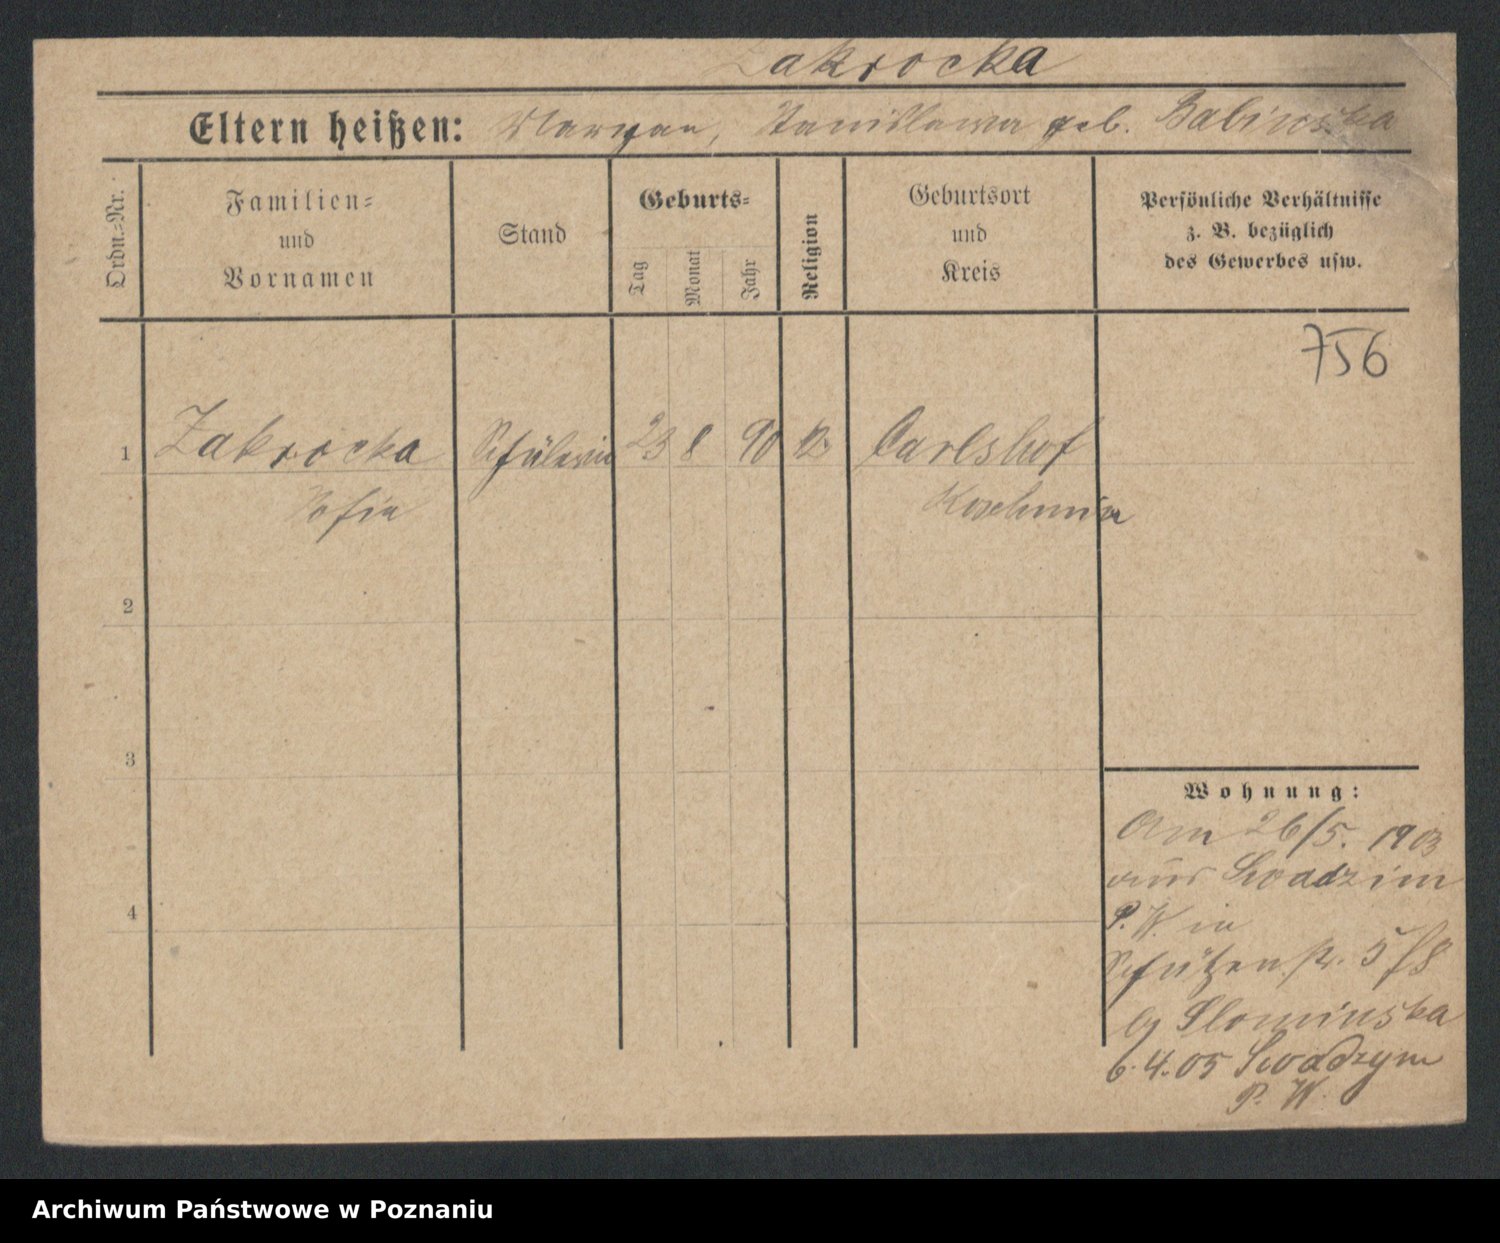 Zakrocka
Eltern heißen: Maryan, Stanislawa geb. Babinska
Ordn.=Nr.
Familien=
und
Vornamen
Stand
Geburts=
Tag
Monat
Jahr
Religion
Geburtsort
und
Kreis
Persönliche Verhältnisse
z. B. bezüglich
des Gewerbes usw.
756
1 Zakrocka Schülerin 23 8 90 k. Carlshof
Sofia Koschmin
2
3
4
Wohnung:
Am 26/5. 1903
aus Swadzim
P. W. in
Schützenstr. 5
Slominska
6.4.05 Swadzym
P. W.
Archiwum Państwowe w Poznaniu